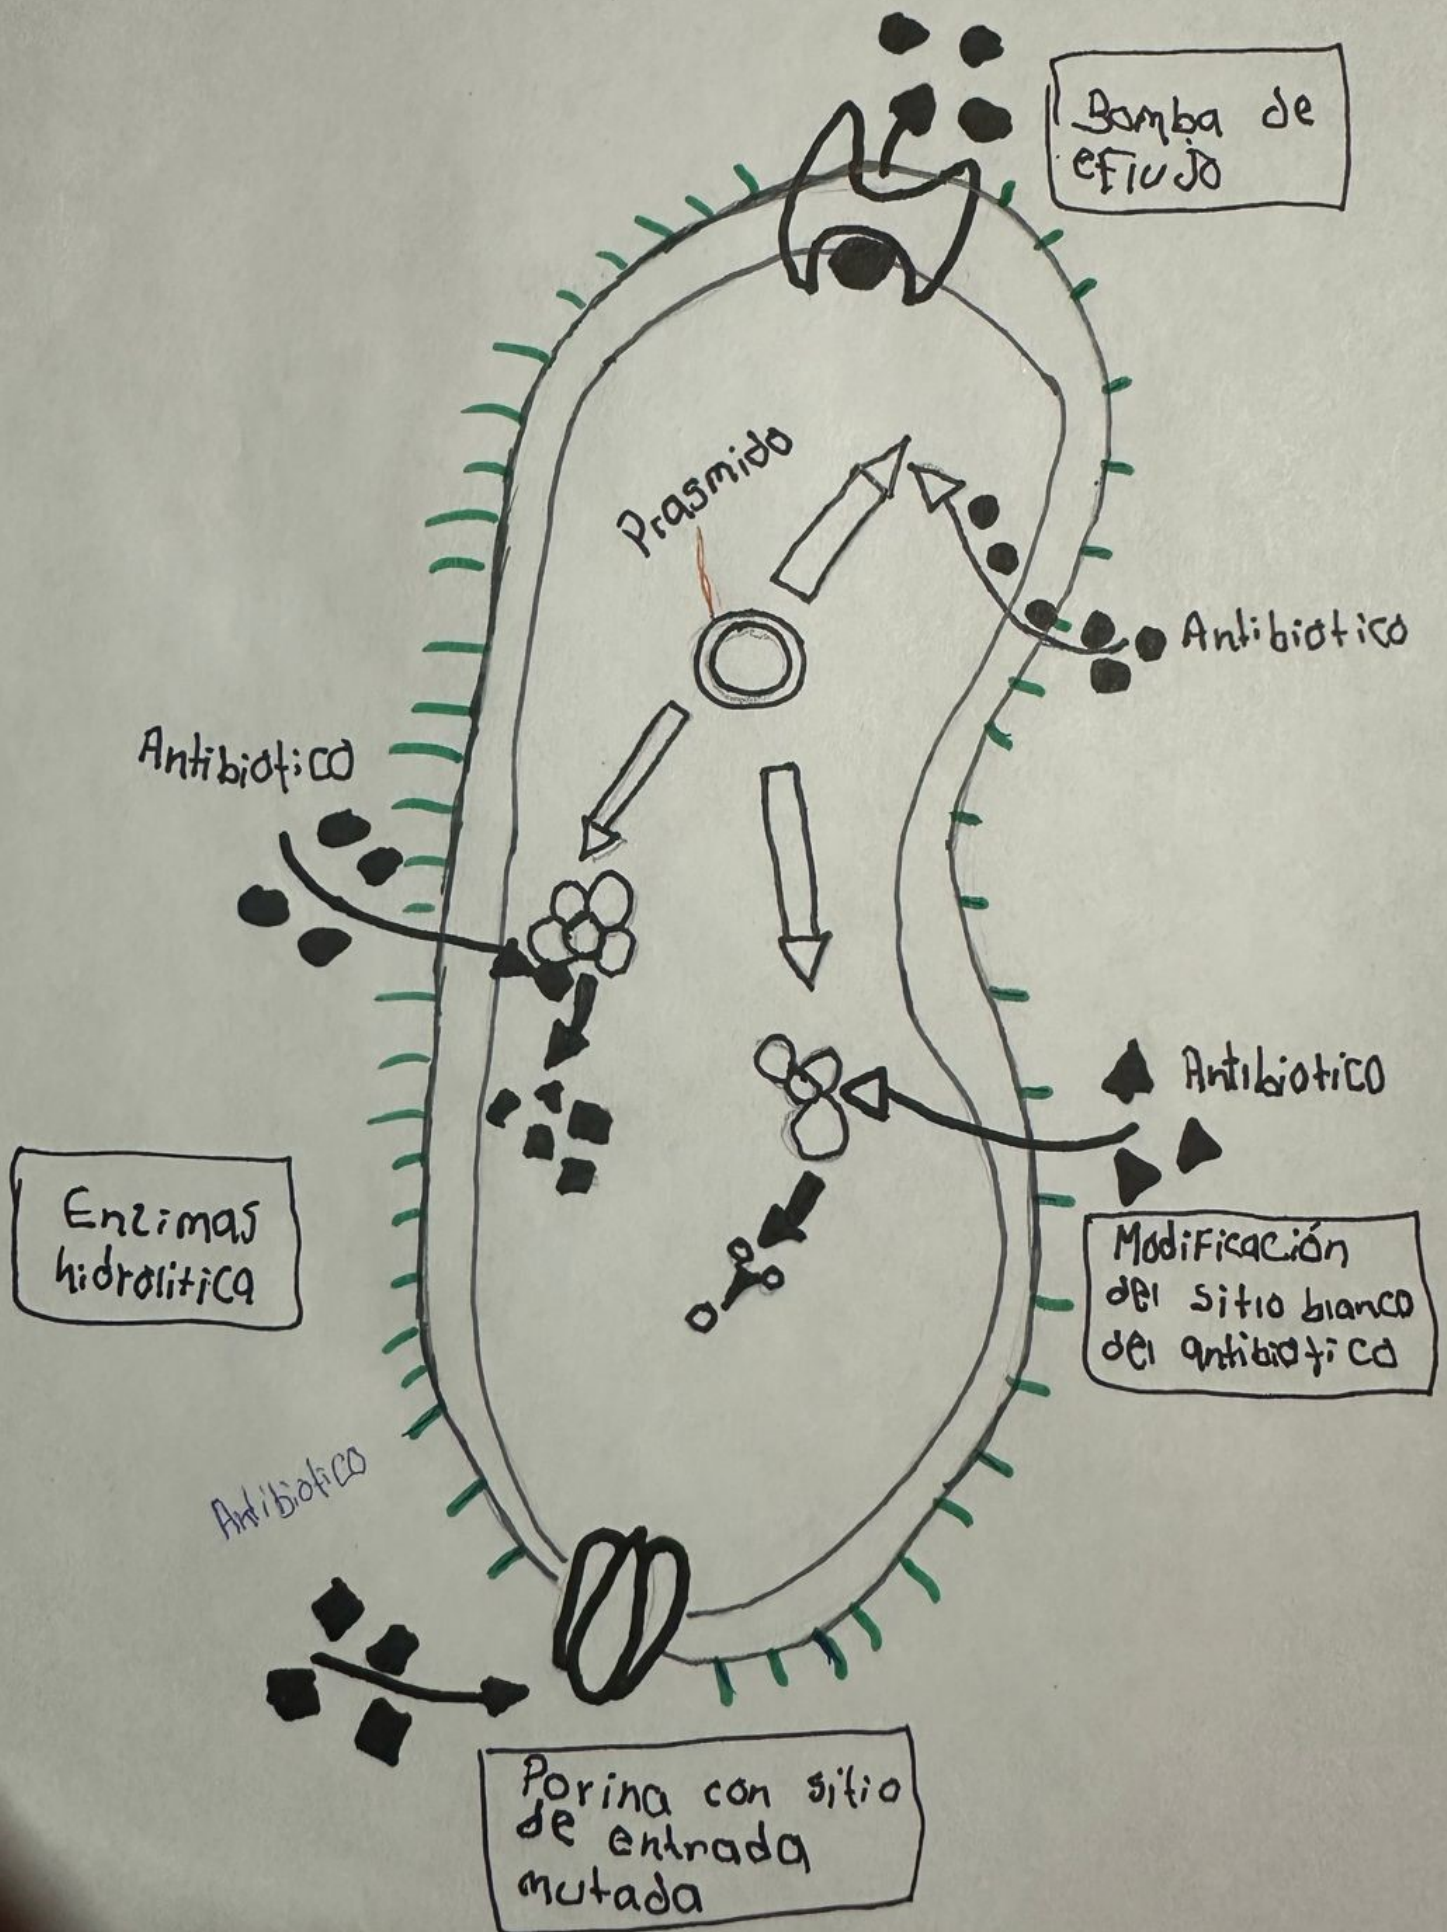 Bomba de
eFiujo
Prasmido
Antibiotico
Antibiotico
Antibiotico
Enzimas
hidrolitica
Modificación
del sitio blanco
del antibiotico
Antibiotico
Porina con sitio
de entrada
mutada